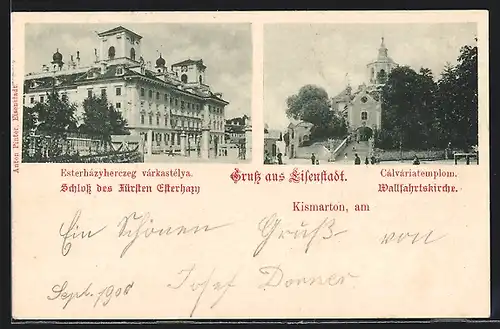 Anton Pinter, Eisenstadt
Esterházyherczeg várkastélya.
Schloß des Fürsten Esterhazy
Gruß aus Eisenstadt.
Cálváriatemplom.
Wallfahrtskirche.
Kismarton, am
Ein Schönen Gruß von
Josef Dorner
Sept. 1908